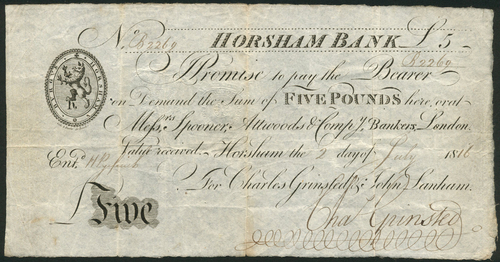 No B2269 HORSHAM BANK £5
B2269
I Promise to pay the Bearer
on Demand the Sum of FIVE POUNDS here, or at
Messrs Spooner, Attwoods & Compy. Bankers, London.
Value received. Horsham the 2 day of July 1816
Entd.
For Charles Grinsted & John Lanham.
£ Five
Cha Grinsted